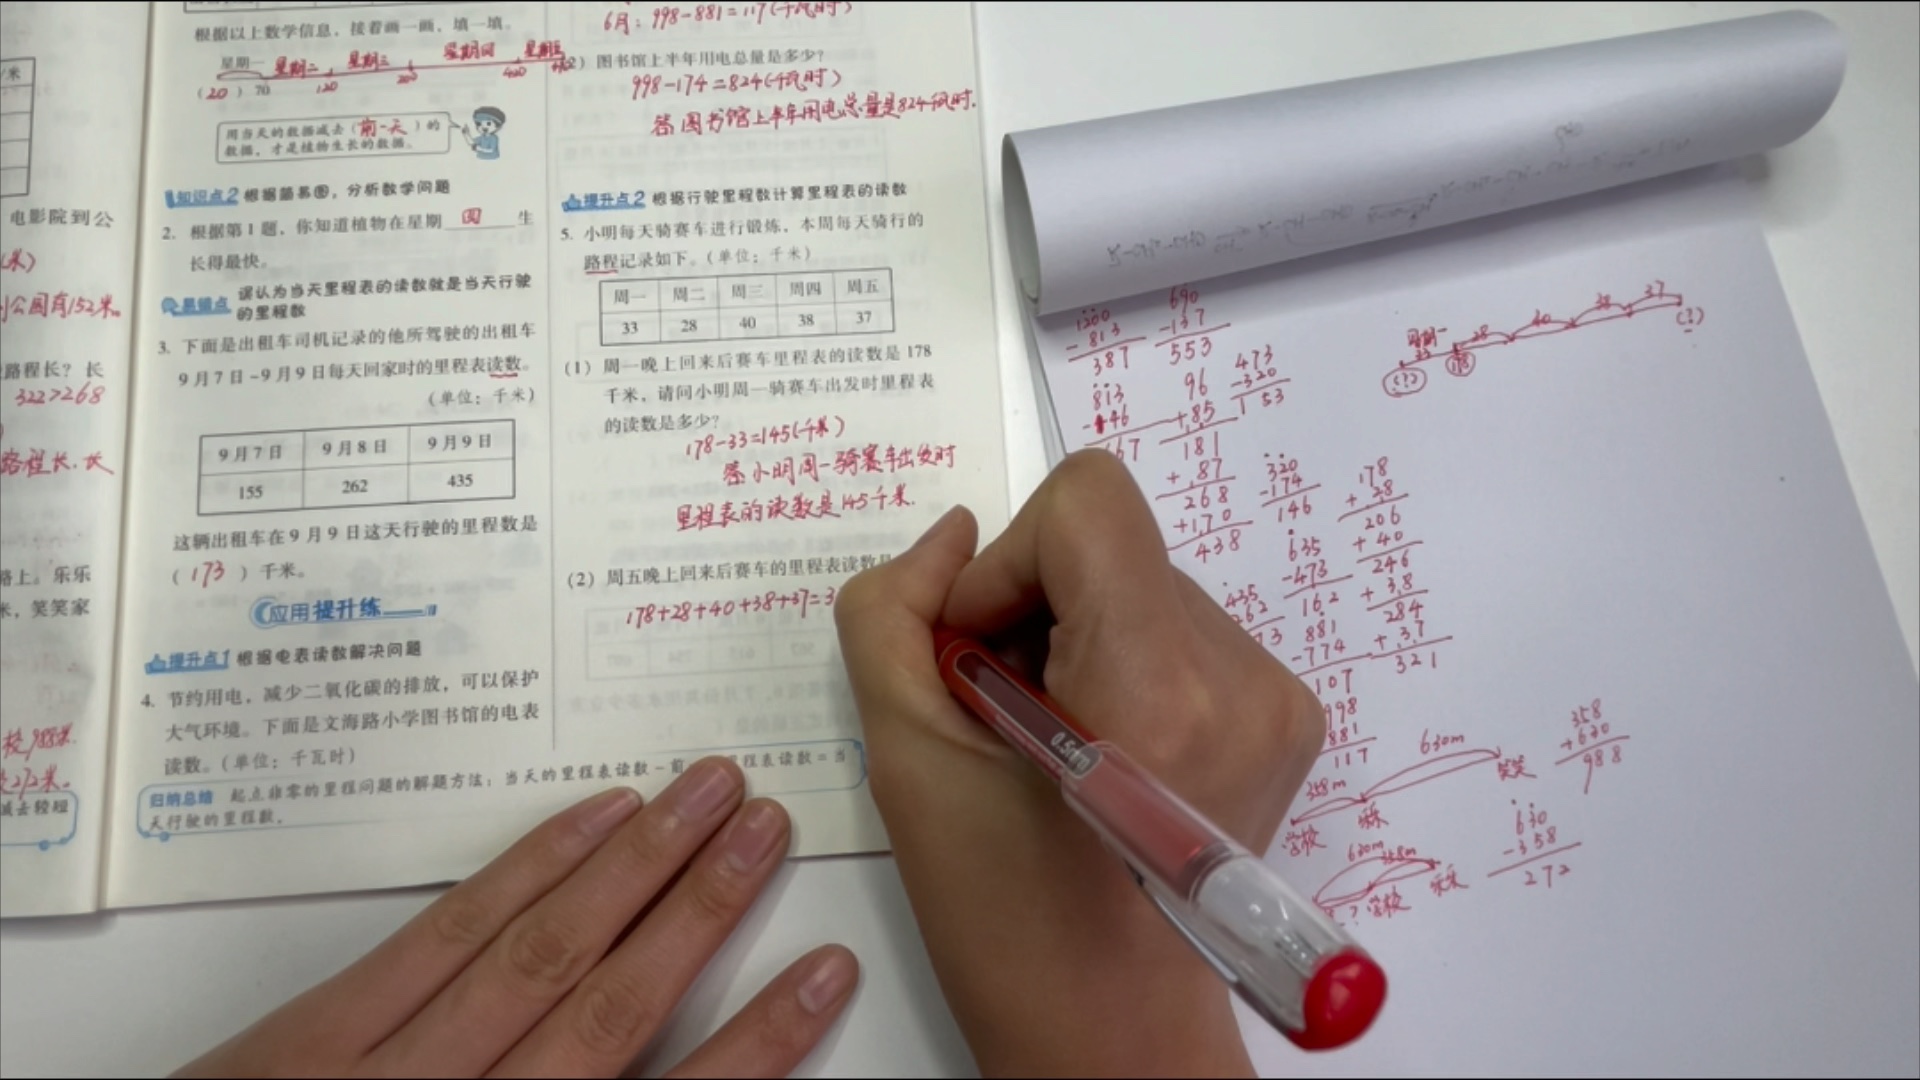 米
电影院到公
米)
公园有152米。
路程长?长
322>268
路程长.长
路上。乐乐
米,笑笑家
校988米.
272米.
减去较短
根据以上数学信息,接着画一画,填一填。
星期一 星期二 星期三 星期四 星期五
(20)70 120 200 420
用当天的数据减去(前一天)的
数据,才是植物生长的数据。
知识点2 根据简易图,分析数学问题
2. 根据第1题,你知道植物在星期 四 生
长得最快。
易错点 误认为当天里程表的读数就是当天行驶
的里程数
3. 下面是出租车司机记录的他所驾驶的出租车
9月7日~9月9日每天回家时的里程表读数。
(单位:千米)
9月7日 9月8日 9月9日
155 262 435
这辆出租车在9月9日这天行驶的里程数是
(173)千米。
应用提升练
提升点1 根据电表读数解决问题
4. 节约用电,减少二氧化碳的排放,可以保护
大气环境。下面是文海路小学图书馆的电表
读数。(单位:千瓦时)
归纳总结 起点非零的里程问题的解题方法:当天的里程表读数-前 里程表读数=当
天行驶的里程数。
6月:998-881=117(千瓦时)
2)图书馆上半年用电总量是多少?
998-174=824(千瓦时)
答:图书馆上半年用电总量是824千瓦时.
提升点2 根据行驶里程数计算里程表的读数
5. 小明每天骑赛车进行锻炼,本周每天骑行的
路程记录如下。(单位:千米)
周一 周二 周三 周四 周五
33 28 40 38 37
(1)周一晚上回来后赛车里程表的读数是178
千米,请问小明周一骑赛车出发时里程表
的读数是多少?
178-33=145(千米)
答:小明周一骑赛车出发时
里程表的读数是145千米.
(2)周五晚上回来后赛车的里程表读数是
178+28+40+38+37=3
1200
-813
387
813
-146
667
690
-137
553
96
+85
181
+87
268
+170
438
473
-320
153
320
-174
146
635
-473
162
881
-774
107
998
881
117
435
262
73
178
+28
206
+40
246
+38
284
+37
321
星期一 28 40 38 37
33
(?) 178 (?)
358m 630m
学校 乐乐 笑笑
358
+630
988
630m 358m
? 学校 乐乐
630
-358
272
0.5mm